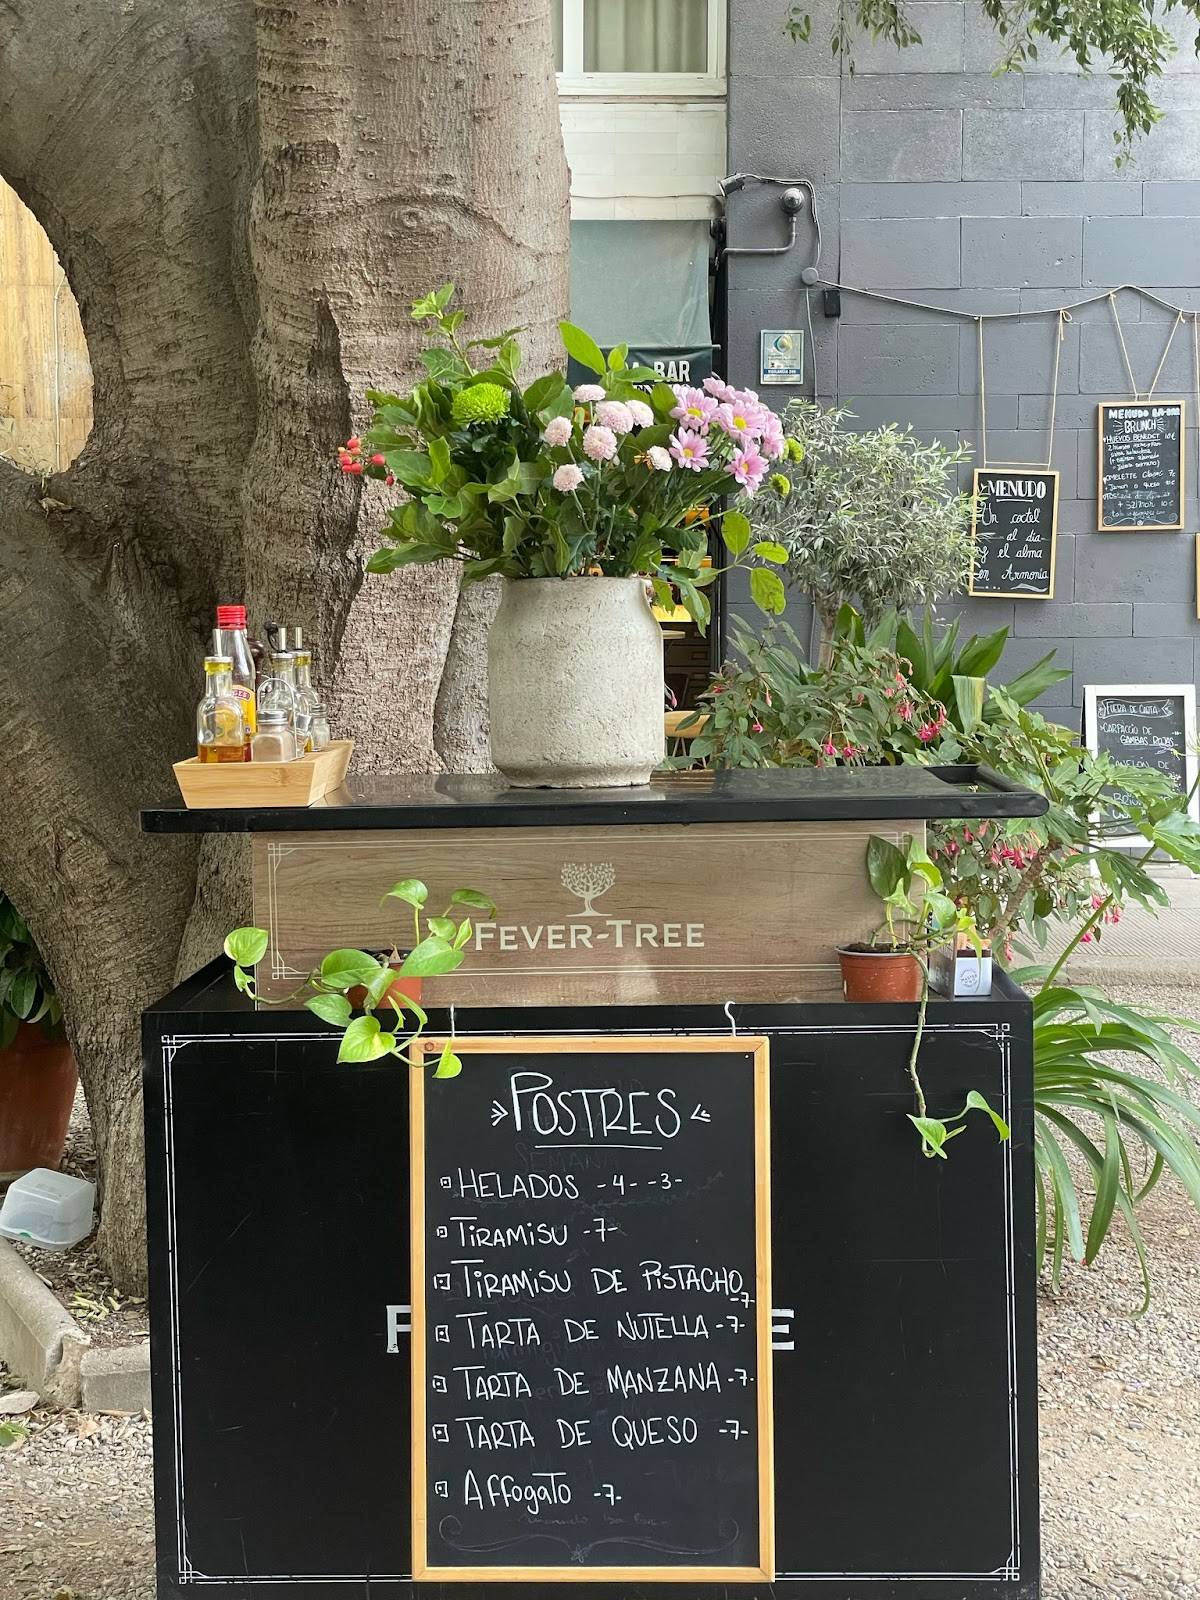 A BAR
MENUDO
Un coctel
al dia
y el alma
en Armonia
MENUDO BA-BAR
BRUNCH
HUEVOS BENEDICT 10€
OMELETTE Clasic 7€
+ Jamon o queso
+ SALMON 10€
FUERA DE CARTA
CARPACCIO DE
GAMBAS ROJAS
CANELÓN DE
FEVER-TREE
POSTRES
HELADOS -4- -3-
TIRAMISU -7-
TIRAMISU DE PISTACHO
-7-
TARTA DE NUTELLA -7-
TARTA DE MANZANA -7-
TARTA DE QUESO -7-
AFFOGATO -7-
F E